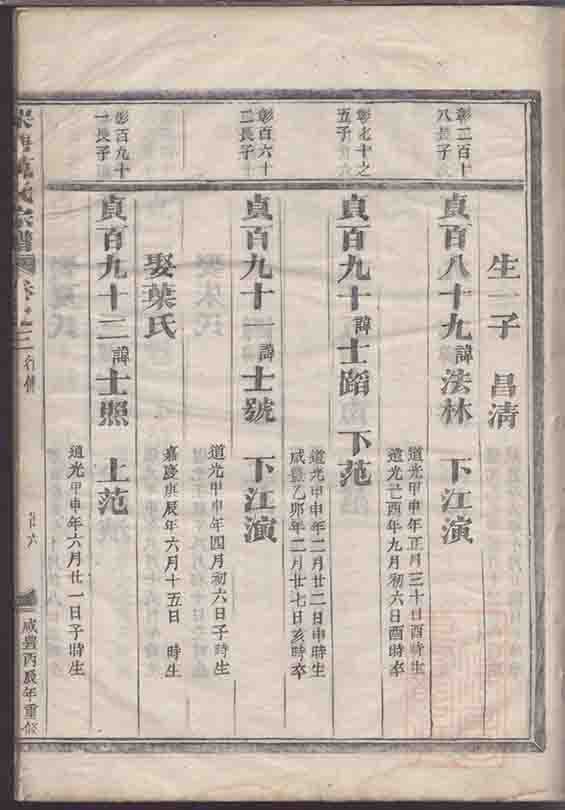 生一子 昌清
彰二百十
八長子
貞百八十九諱法林 下江演
道光甲申年正月三十日酉時生
道光己酉年九月初六日酉時卒
彰七十之
五子
貞百九十諱士蹈 下范
道光甲申年二月廿二日申時生
咸豐乙卯年二月廿七日亥時卒
彰百六十
二長子
貞百九十一諱士號 下江演
道光甲申年四月初六日子時生
娶葉氏
嘉慶庚辰年六月十五日 時生
彰百九十
一長子
貞百九十二諱士照 上范
道光甲申年六月廿一日子時生
范氏宗譜 卷之三 行傳
廿六
咸豐丙辰年重修